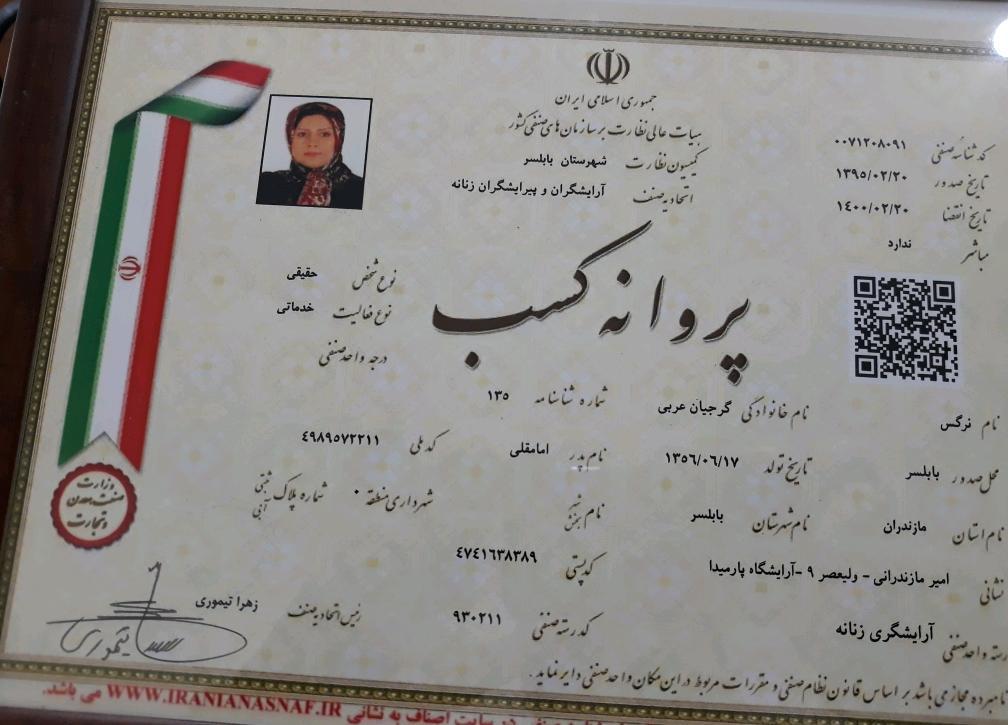 جمهوری اسلامی ایران
هیات عالی نظارت بر سازمان های صنفی کشور
کمیسیون نظارت شهرستان بابلسر
اتحادیه صنف آرایشگران و پیرایشگران زنانه
کد شناسه صنفی ۰۰۷۱۲۰۸۰۹۱
تاریخ صدور ۱۳۹۵/۰۲/۲۰
تاریخ انقضا ۱۴۰۰/۰۲/۲۰
مباشر ندارد
پروانه کسب
نوع شخص حقیقی
نوع فعالیت خدماتی
درجه واحد صنفی
نام نرگس نام خانوادگی گرجیان عربی شماره شناسنامه ۱۳۵
محل صدور بابلسر تاریخ تولد ۱۳۵۶/۰۶/۱۷ نام پدر امامقلی کد ملی ۴۹۸۹۵۷۲۲۱۱
نام استان مازندران نام شهرستان بابلسر نام شهر بخش شهرداری منطقه ۰ شماره پلاک ثبتی آبی
نشانی امیر مازندرانی - ولیعصر ۹ -آرایشگاه پارمیدا کد پستی ۴۷۴۱۶۳۸۳۸۹
رسته واحد صنفی آرایشگری زنانه کد رسته صنفی ۹۳۰۲۱۱ رئیس اتحادیه صنف زهرا تیموری
نامبرده مجاز می باشد بر اساس قانون نظام صنفی و مقررات مربوط در این مکان واحد صنفی دایر نماید .
وزارت
صنعت، معدن
و تجارت
در سایت اصناف به نشانی WWW.IRANIANASNAF.IR می باشد.